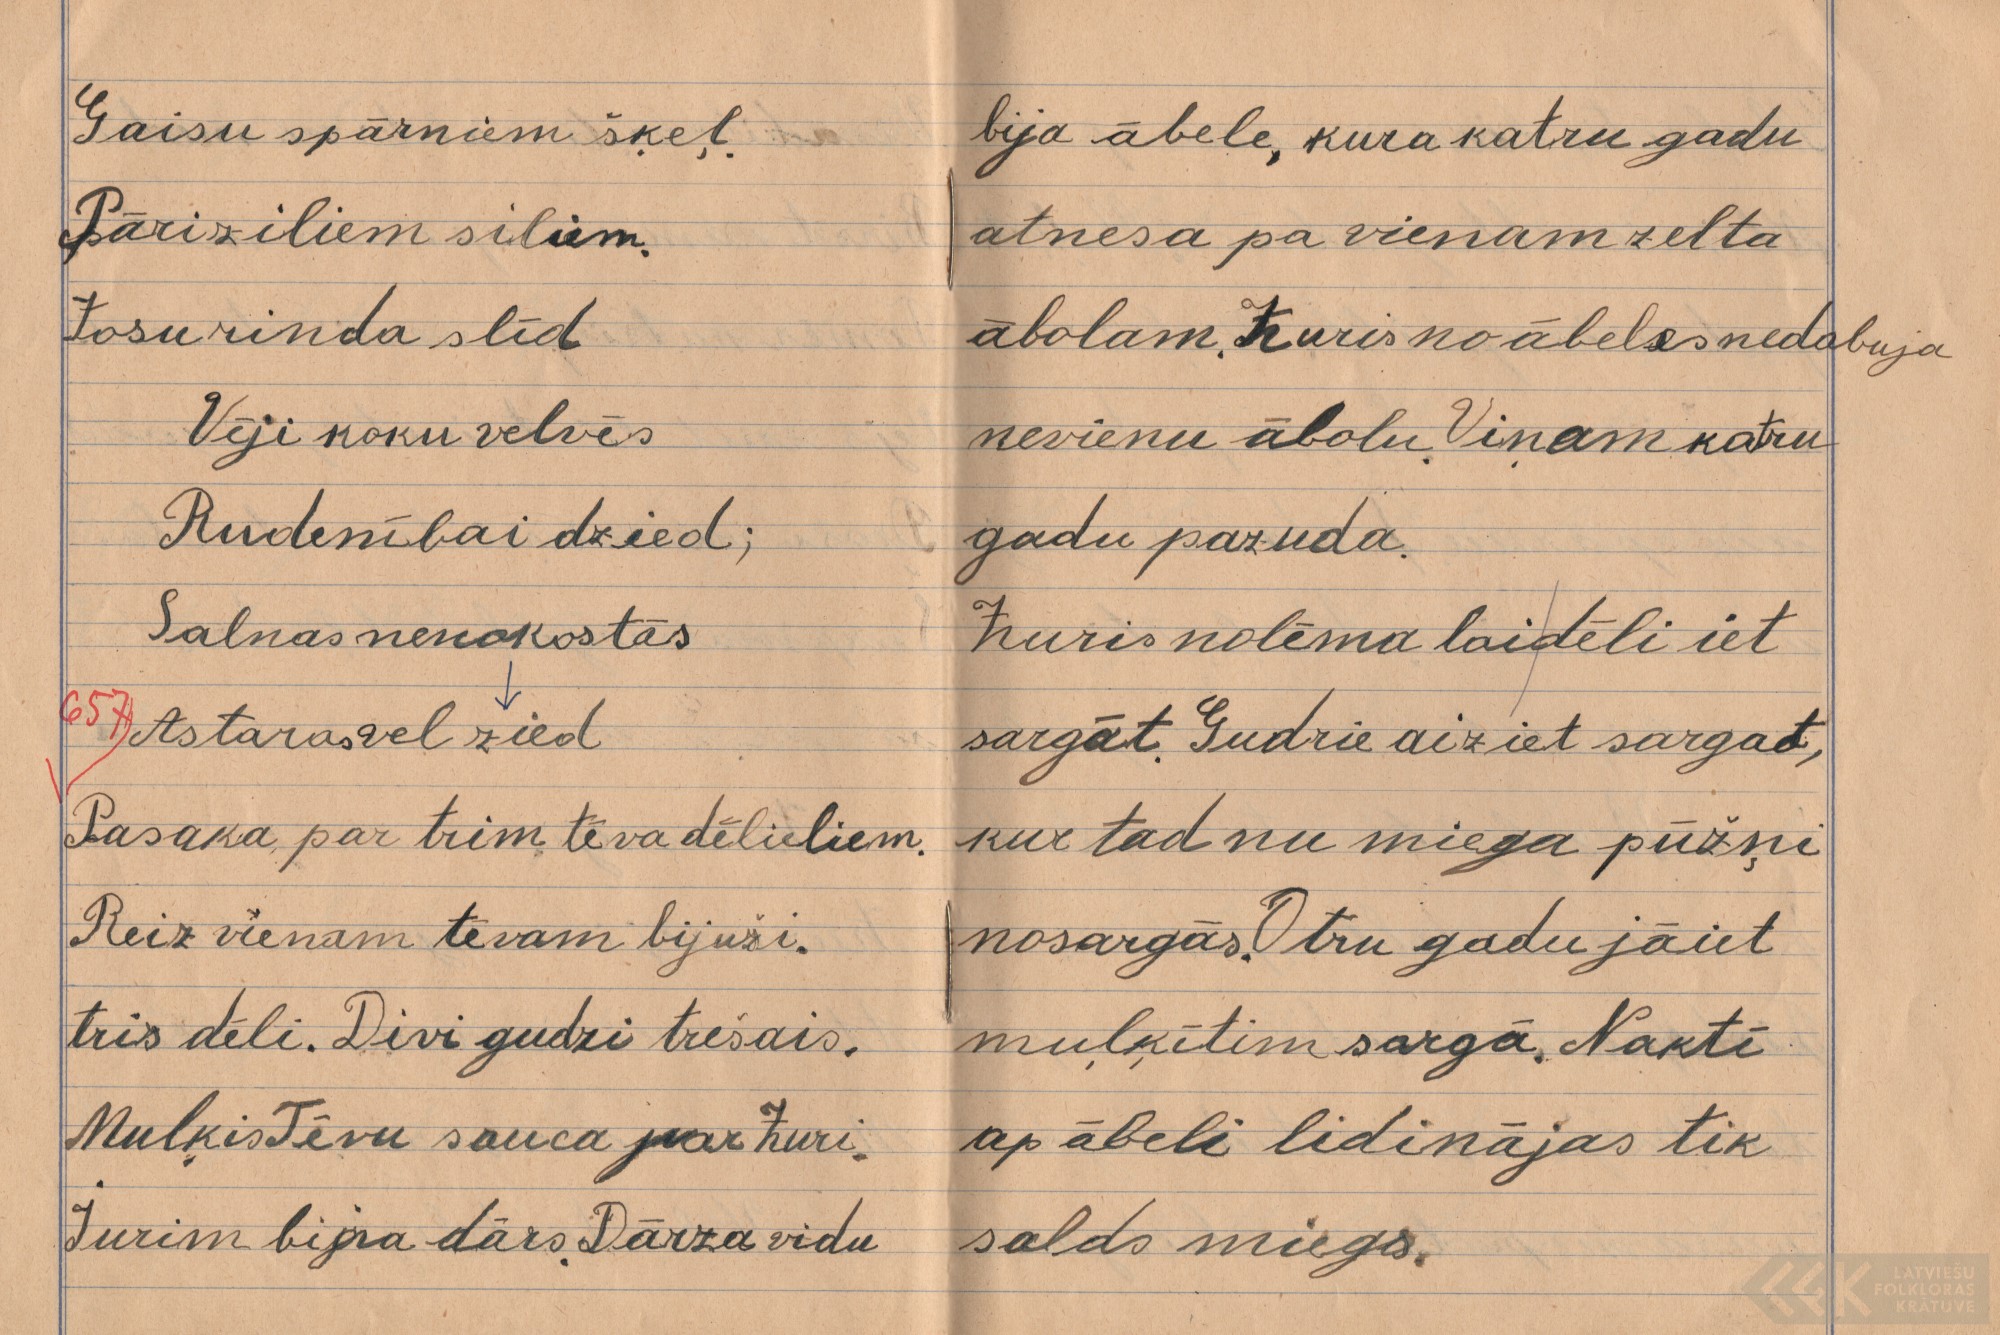 Gaisu spārniem šķeļ.
Pāri ziliem siliem.
Zosu rinda slīd
Vēji koku velvēs
Rudenībai dzied;
Salnas nenokostās
657
Astaras vel zied
Pasaka par trim tēva dēlieliem.
Reiz vienam tēvam bijuši.
tris dēli. Divi gudri trešais.
Muļķis Tēvu sauca par Žuri.
Jurim bija dārs. Dārza vidu
bija ābele, kura katru gadu
atnesa pa vienam zelta
ābolam. Žuris no ābeles nedabuja
nevienu ābolu. Viņam katru
gadu pazuda.
Žuris nolēma lai dēli iet
sargāt. Gudrie aiziet sargat,
kur tad nu miega pūžņi
nosargās. Otru gadu jāiet
muļķītim sargā. Naktī
ap ābeli lidinājas tik
salds miegs.
LATVIEŠU
FOLKLORAS
KRĀTUVE